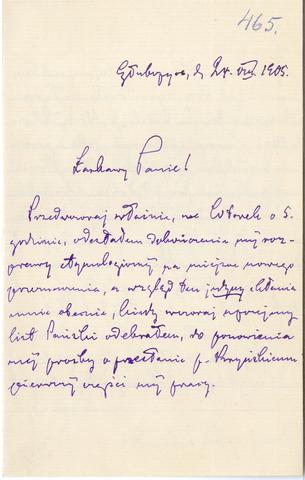 465.
Głubczyce, d. 24. VIII. 1905.
Łaskawy Panie!
Przedwczoraj właśnie, we Wtorek o 5.
godzinie, odesłałem dokończenie mej roz-
prawy etymologicznej na miejsce nowego
przeznaczenia, a wzgląd ten jedyny skłania
mnie obecnie, kiedy wczoraj uprzejmy
list Pański odebrałem, do ponowienia
mej prośby o przesłanie p. 
pierwszej części mej pracy.